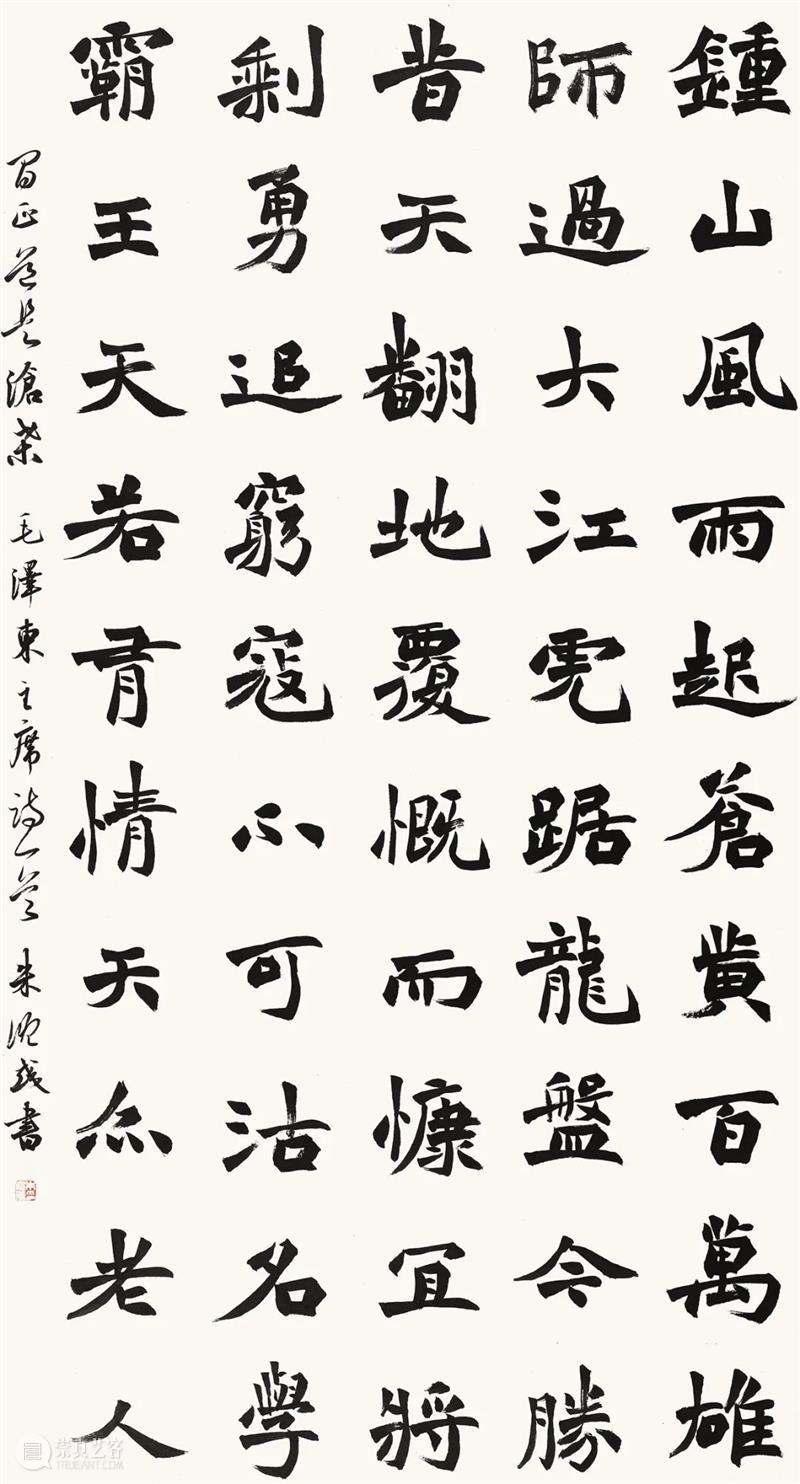 鍾山風雨起蒼黄百萬雄
師過大江虎踞龍盤今勝
昔天翻地覆慨而慷宜將
剩勇追窮寇不可沽名學
霸王天若有情天亦老人
間正道是滄桑 毛澤東主席詩一首 朱書
崇真艺客